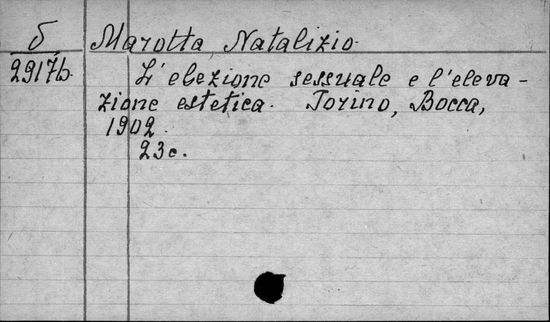 δ Marotta, Natalizio.
2917b. L'elezione sessuale e l'eleva-
zione estetica. Torino, Bocca,
1902.
23c.